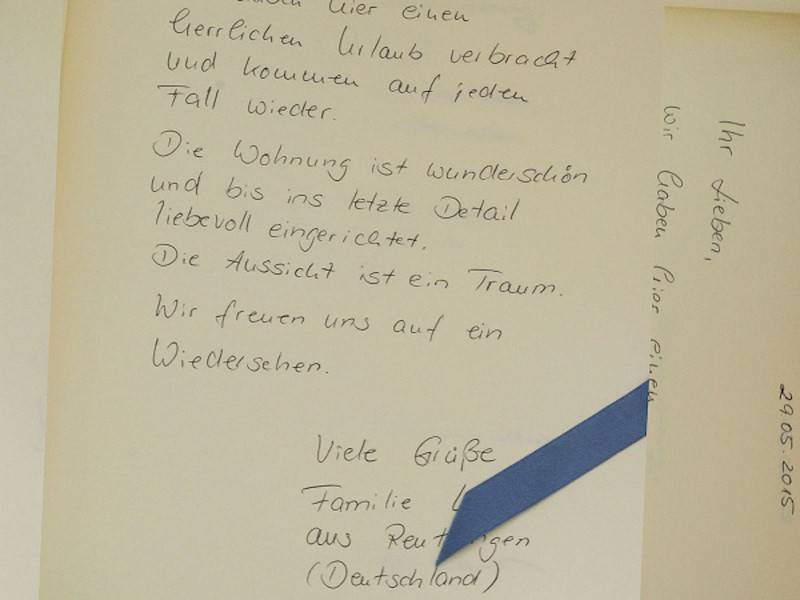 hier einen
herrlichen Urlaub verbracht
und kommen auf jeden
Fall wieder.
Die Wohnung ist wunderschön
und bis ins letzte Detail
liebevoll eingerichtet.
Die Aussicht ist ein Traum.
Wir freuen uns auf ein
Wiedersehen.
Viele Grüße
Familie
aus
(Deutschland)
29.05.2015
Ihr Lieben,
Wir haben hier einen